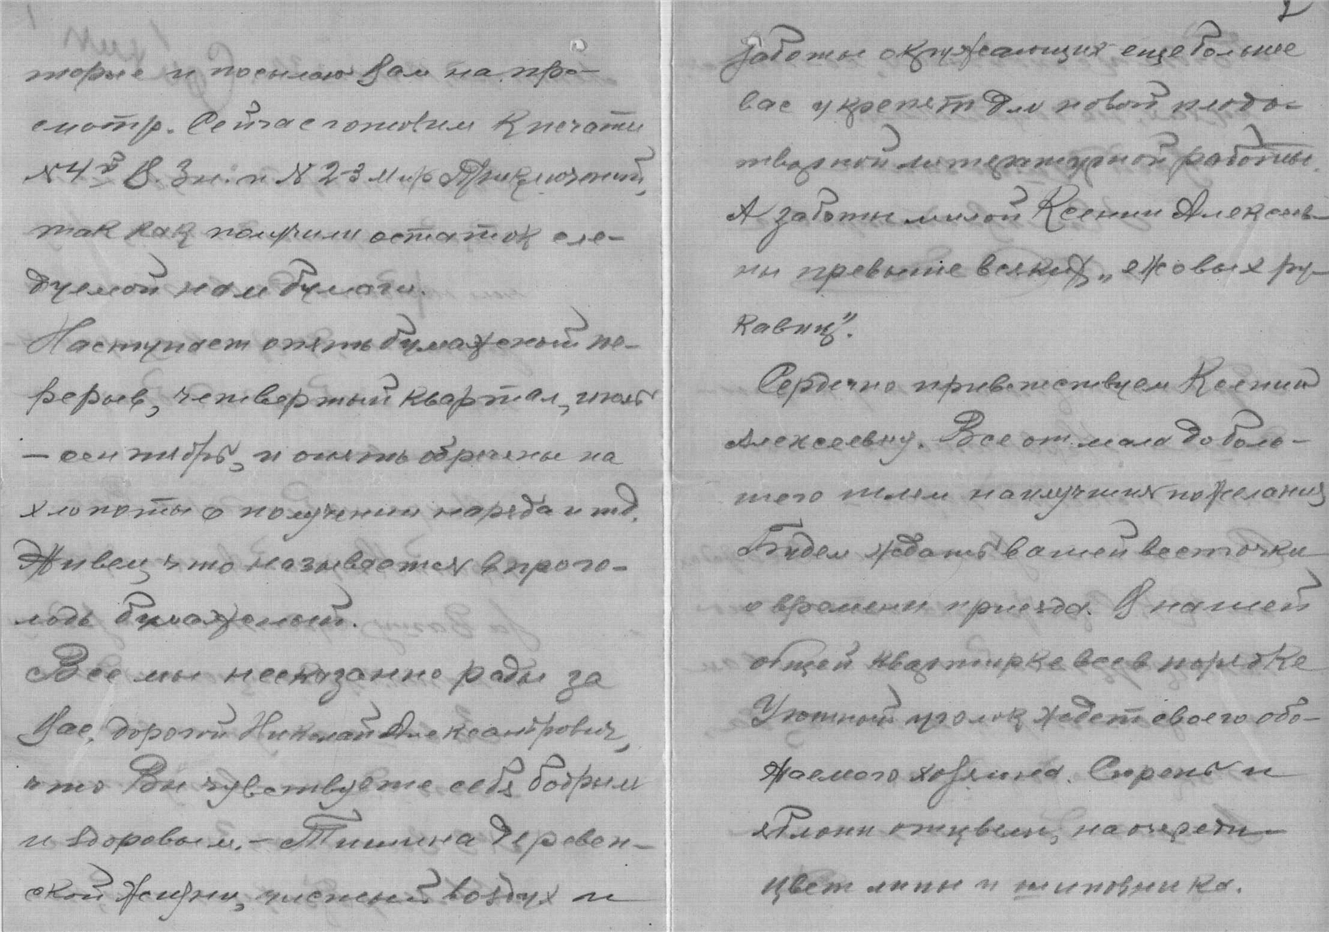 торые и посылаю Вам на про-
смотр. Сейчас готовим к печати
№ 4й В. Зн. и № 2-3 Мир Приключений,
так как получили остаток сле-
дуемой нам бумаги.
Наступает опять бумажный пе-
рерыв, четвертый квартал, июль
— сентябрь, и опять обречены на
хлопоты о получении наряда и т.д.
Живем, что называется впрого-
лодь бумажный.
Все мы несказанно рады за
Вас, дорогой Николай Александрович,
что Вы чувствуете себя бодрым
и здоровым. — Тишина деревен-
ской жизни, чистый воздух и
2
заботы окружающих еще больше
вас укрепят для новой плодо-
творной литературной работы.
А заботы милой Ксении Алексеев-
ны превыше всяких „ежовых ру-
кавиц".
Сердечно приветствуем Ксению
Алексеевну. Все от мала до боль-
шого шлем наилучшия пожелания
Будем ждать вашей весточки
о времени приезда. В нашей
общей квартирке все в порядке
Уютный уголок ждет своего обо-
жаемого хозяина. Сирень и
яблони отцвели, на очереди
цвет липы и шиповника.